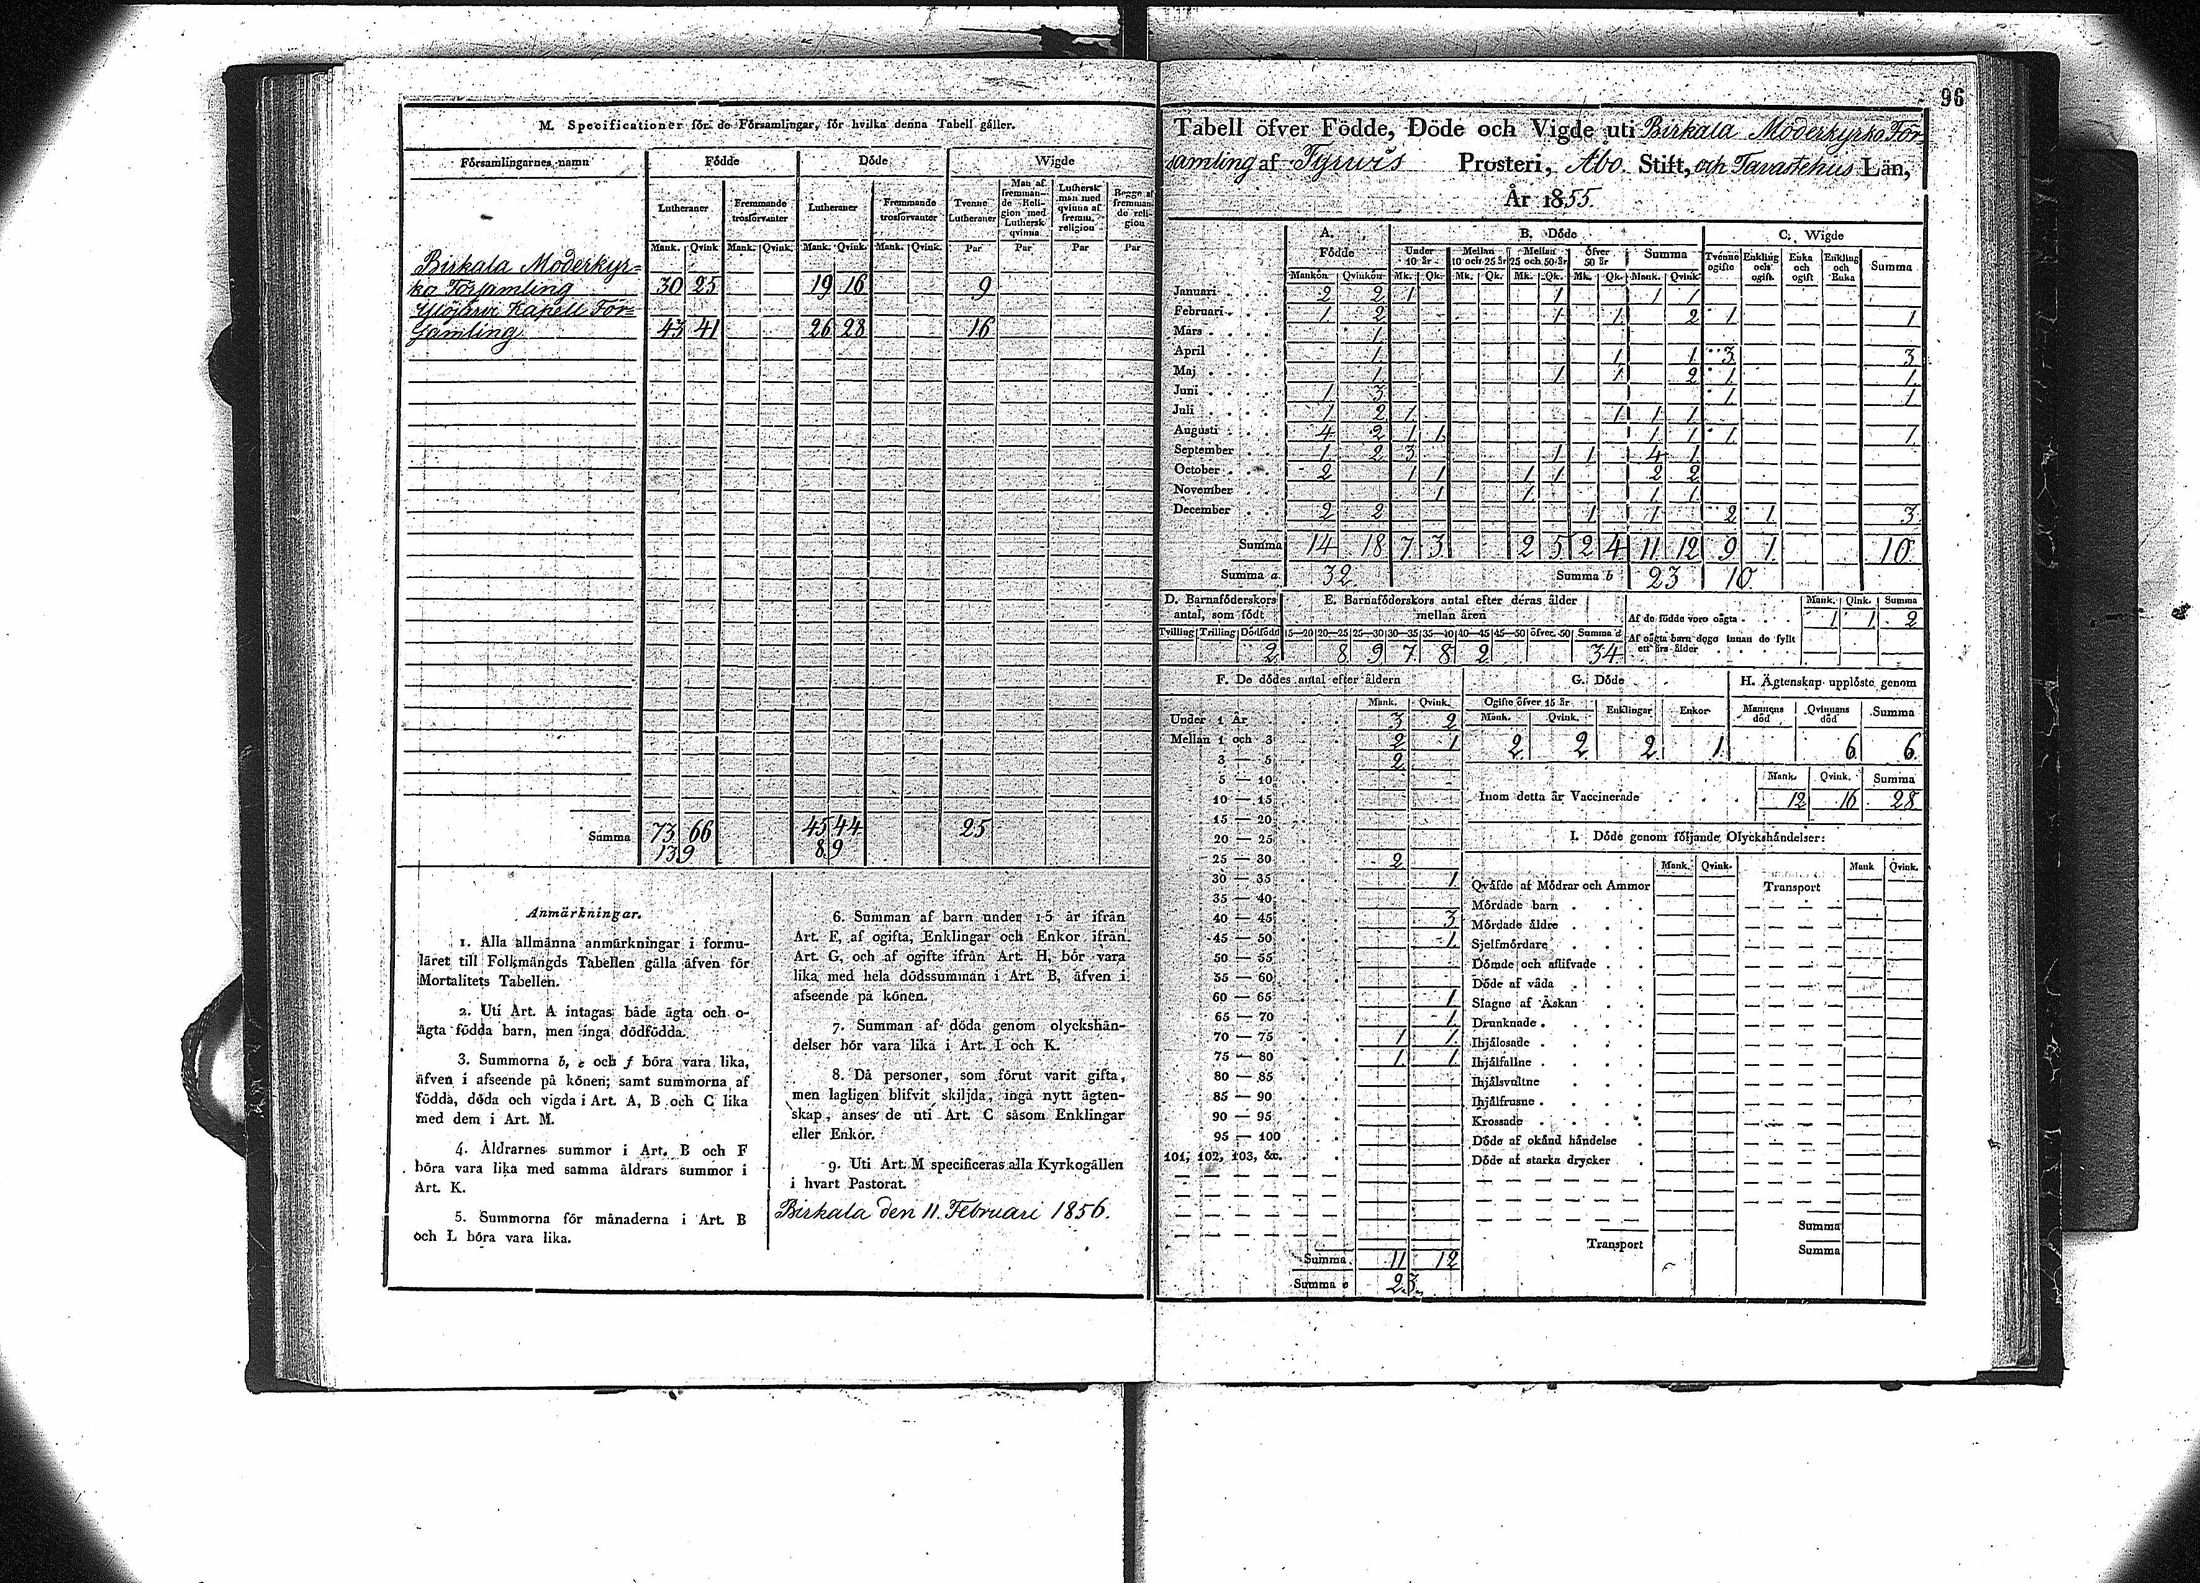 M. Specificationer för de Församlingar, för hvilka denna Tabell gäller.
Församlingarnes namn Födde Döde Wigde
Lutheraner Fremmande trosförvanter Lutheraner Fremmande trosförvanter Tvenne Lutheraner Man af fremmande Religion med Luthersk qvinna Luthersk man med qvinna af fremm. religion Begge af fremmande religion
Mank. Qvink Mank. Qvink. Mank. Qvink. Mank. Qvink. Par Par Par Par
Birkala Moderkyr=
ko Församling 30 25 19 16 9
Ylöjärvi Kapell För=
samling 43 41 26 28 16
Summa 73 66 45 44 25
139 89
Anmärkningar.
1. Alla allmänna anmärkningar i formu-
läret till Folkmängds Tabellen gälla äfven för
Mortalitets Tabellen.
2. Uti Art. A intagas både ägta och o-
ägta födda barn, men inga dödfödda.
3. Summorna b, e och f böra vara lika,
äfven i afseende på könen; samt summorna af
födda, döda och vigda i Art. A, B och C lika
med dem i Art. M.
4. Åldrarnes summor i Art. B och F
böra vara lika med samma åldrars summor i
Art. K.
5. Summorna för månaderna i Art. B
och L böra vara lika.
6. Summan af barn under 15 år ifrån
Art. F, af ogifta, Enklingar och Enkor ifrån
Art. G, och af ogifte ifrån Art. H, bör vara
lika med hela dödssumman i Art. B, äfven i
afseende på könen.
7. Summan af döda genom olyckshän-
delser bör vara lika i Art. I och K.
8. Då personer, som förut varit gifta,
men lagligen blifvit skiljda, ingå nytt ägten-
skap, anses de uti Art. C såsom Enklingar
eller Enkor.
9. Uti Art. M specificeras alla Kyrkogällen
i hvart Pastorat.
Birkala den 11. Februari 1856.
96
Tabell öfver Födde, Döde och Vigde uti Birkala Moderkyrko För-
samling af Tyrvis Prosteri, Åbo Stift, och Tavastehus Län,
År 1855.
A. Födde B. Döde C. Wigde
Under 10 år Mellan 10 och 25 år Mellan 25 och 50 år öfver 50 år Summa Tvenne ogifte Enkling och ogift Enka och ogift Enkling och Enka Summa
Mankön Qvinkön Mk. Qk. Mk. Qk. Mk. Qk. Mk. Qk. Mank. Qvink
Januari 2 2 1 1 1 1
Februari 1 2 1 1 2 1 1
Mars 1
April 1 1 1 3 3
Maj 1 1 1 2 1 1
Juni 1 3 1 1
Juli 1 2 1 1 1 1
Augusti 4 2 1 1 1 1 1 1
September 1 2 3 1 1 4 1
October 2 1 1 1 1 2 2
November 1 1 1 1
December 2 2 1 1 2 1 3
Summa 14 18 7 3 2 5 2 4 11 12 9 1 10
Summa a 32 Summa b 23 10
D. Barnaföderskors antal, som födt
Tvilling Trilling Dödfödd
2
E. Barnaföderskors antal efter deras ålder mellan åren
15—20 20—25 25—30 30—35 35—40 40—45 45—50 öfver 50 Summa d
8 9 7 8 2 34
Mank. Qink. Summa
Af de födde voro oägta 1 1 2
Af oägta barn dogo innan de fyllt
ett års ålder
F. De dödes antal efter åldern
Mank. Qvink.
Under 1 År 3 2
Mellan 1 och 3 2 1
3 — 5 2
5 — 10
10 — 15
15 — 20
20 — 25
25 — 30 2
30 — 35 1
35 — 40
40 — 45 3
45 — 50 1
50 — 55
55 — 60
60 — 65 1
65 — 70 1
70 — 75 1 1
75 — 80 1 1
80 — 85
85 — 90
90 — 95
95 — 100
101, 102, 103, &c.
Summa 11 12
Summa e 23.
G. Döde
Ogifte öfver 15 år Enklingar Enkor
Mank. Qvink.
2 2 2 1
H. Ägtenskap upplöste genom
Mannens död Qvinnans död Summa
6 6
Mank. Qvink. Summa
Inom detta år Vaccinerade 12 16 28
I. Döde genom följande Olyckshändelser:
Mank. Qvink. Mank Qvink.
Qväfde af Mödrar och Ammor Transport
Mördade barn
Mördade äldre
Sjelfmördare
Dömde och aflifvade
Döde af våda
Slagne af Åskan
Drunknade
Ihjälosade
Ihjälfallne
Ihjälsvultne
Ihjälfrusne
Krossade
Döde af okänd händelse
Döde af starka drycker
Summa
Transport Summa